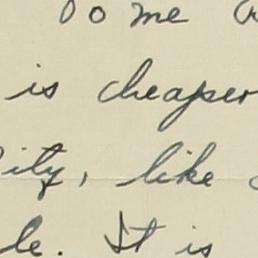 to me
is cheaper
ity, like
le. It is